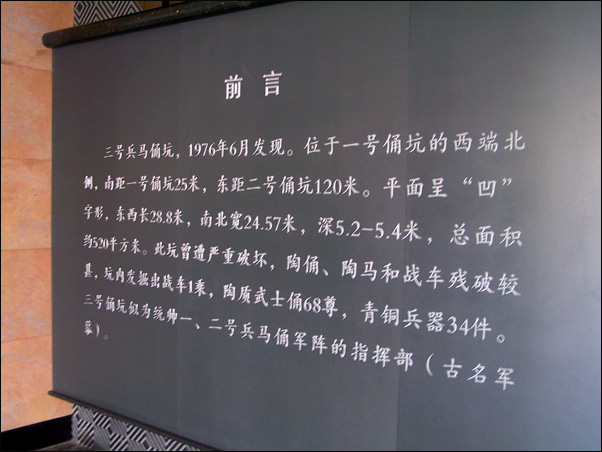 前言
三号兵马俑坑，1976年6月发现。位于一号俑坑的西端北
侧，南距一号俑坑25米，东距二号俑坑120米。平面呈“凹”
字形，东西长28.8米，南北宽24.57米，深5.2-5.4米，总面积
约520平方米。此坑曾遭严重破坏，陶俑、陶马和战车残破较
甚，坑内发掘出战车1乘，陶质武士俑68尊，青铜兵器34件。
三号俑坑似为统帅一、二号兵马俑军阵的指挥部（古名军
幕）。